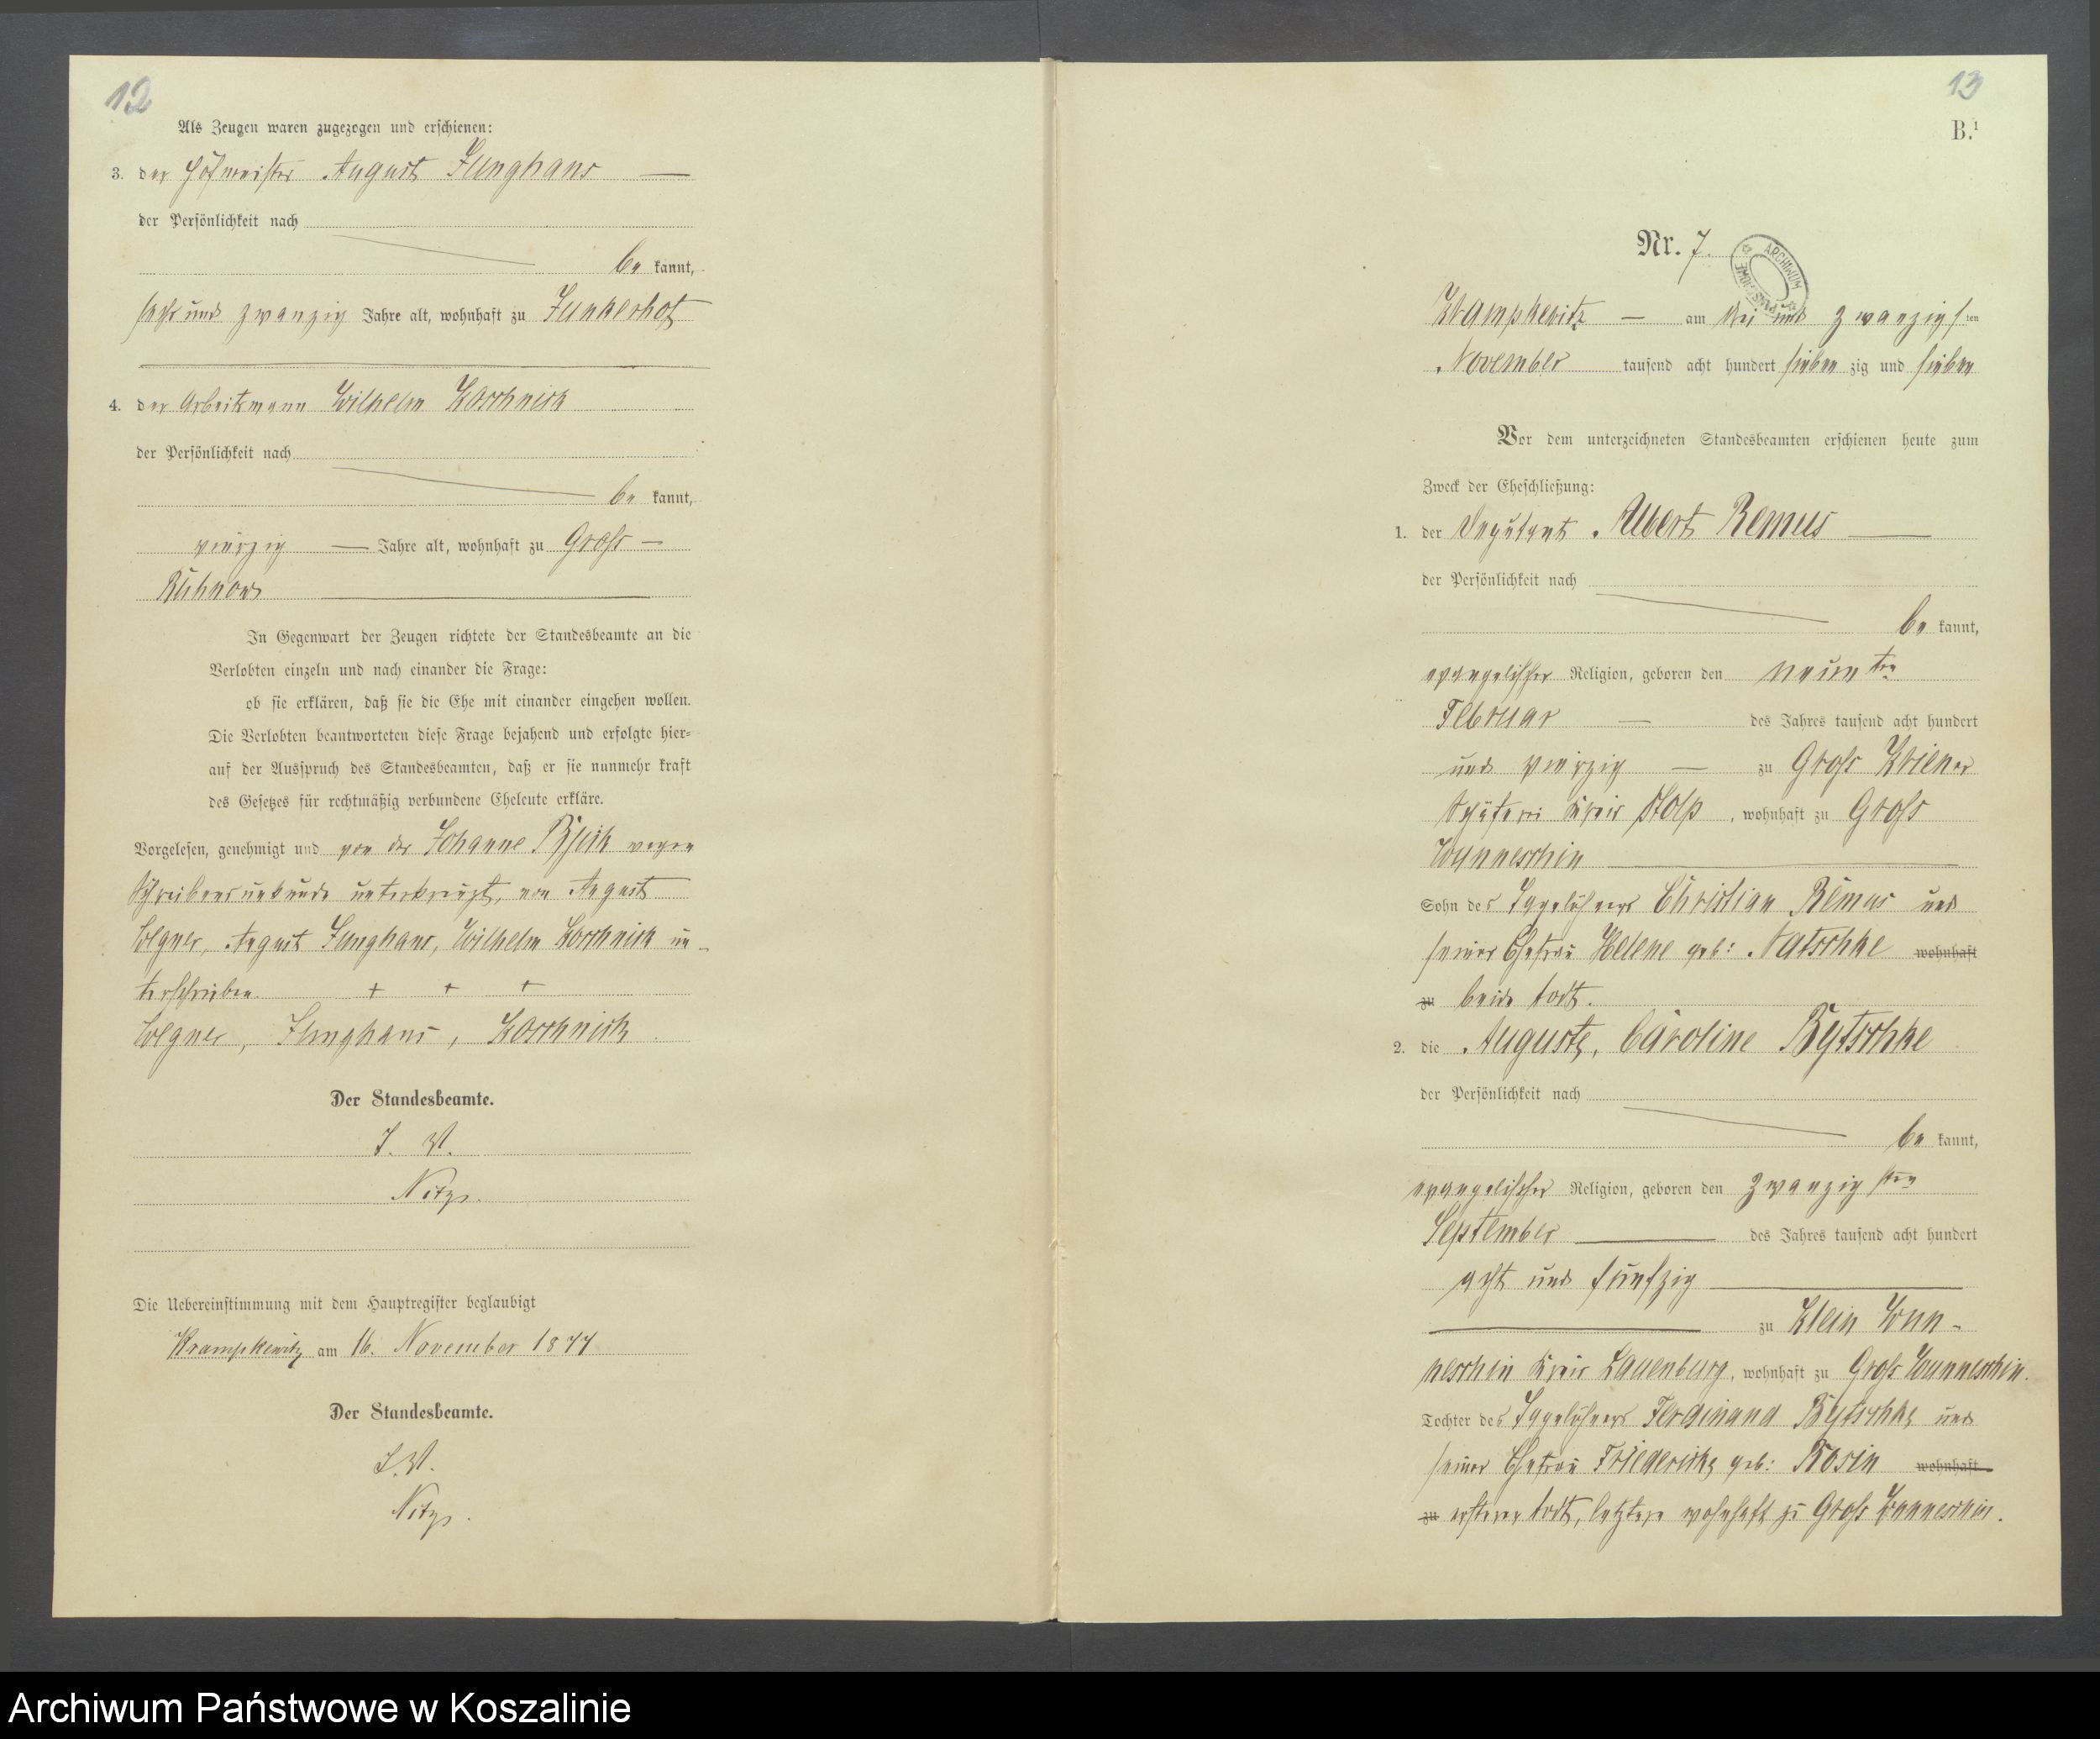 12
Als Zeugen waren zugezogen und erschienen:
3. der Hofmeister August Junghans
der Persönlichkeit nach
be kannt,
sechs und zwanzig Jahre alt, wohnhaft zu Junkerhof
4. der Arbeitsmann Wilhelm Koschnick
der Persönlichkeit nach
be kannt,
vierzig Jahre alt, wohnhaft zu Groß-
Ruhnow
In Gegenwart der Zeugen richtete der Standesbeamte an die
Verlobten einzeln und nach einander die Frage:
ob sie erklären, daß sie die Ehe mit einander eingehen wollen.
Die Verlobten beantworteten diese Frage bejahend und erfolgte hier=
auf der Ausspruch des Standesbeamten, daß er sie nunmehr kraft
des Gesetzes für rechtmäßig verbundene Eheleute erkläre.
Vorgelesen, genehmigt und von der Johanne wegen
Schreibensunkunde unterkreuzt, von August
Wegner, August Junghans, Wilhelm Koschnick un-
terschrieben. + + +
Wegner, Junghans, Koschnick
Der Standesbeamte.
I. V.
Die Uebereinstimmung mit dem Hauptregister beglaubigt
Krampkewitz am 16. November 1877
Der Standesbeamte.
I. V.
13
B.1
Nr. 7.
ARCHIWUM
Krampkewitz am drei und zwanzigsten
November tausend acht hundert sieben zig und sieben
Vor dem unterzeichneten Standesbeamten erschienen heute zum
Zweck der Eheschließung:
1. der Deputant Albert Remus
der Persönlichkeit nach
be kannt,
evangelischer Religion, geboren den neun ten
Februar des Jahres tausend acht hundert
und vierzig zu Groß Kriener
Schäferei Kreis Stolp, wohnhaft zu Groß
Wunneschin
Sohn des Tagelöhners Christian Remus und
seiner Ehefrau Helene geb: Natschke wohnhaft
zu beide todt.
2. die Auguste, Caroline Bytschke
der Persönlichkeit nach
be kannt,
evangelischer Religion, geboren den zwanzig sten
September des Jahres tausend acht hundert
acht und fünfzig
zu Klein Wun-
neschin Kreis Lauenburg, wohnhaft zu Groß Wunneschin.
Tochter des Tagelöhners Ferdinand Bytschke und
seiner Ehefrau Friedericke geb: Rosin wohnhaft
zu ersterer todt, letztere wohnhaft zu Groß Wunneschin.
Archiwum Państwowe w Koszalinie